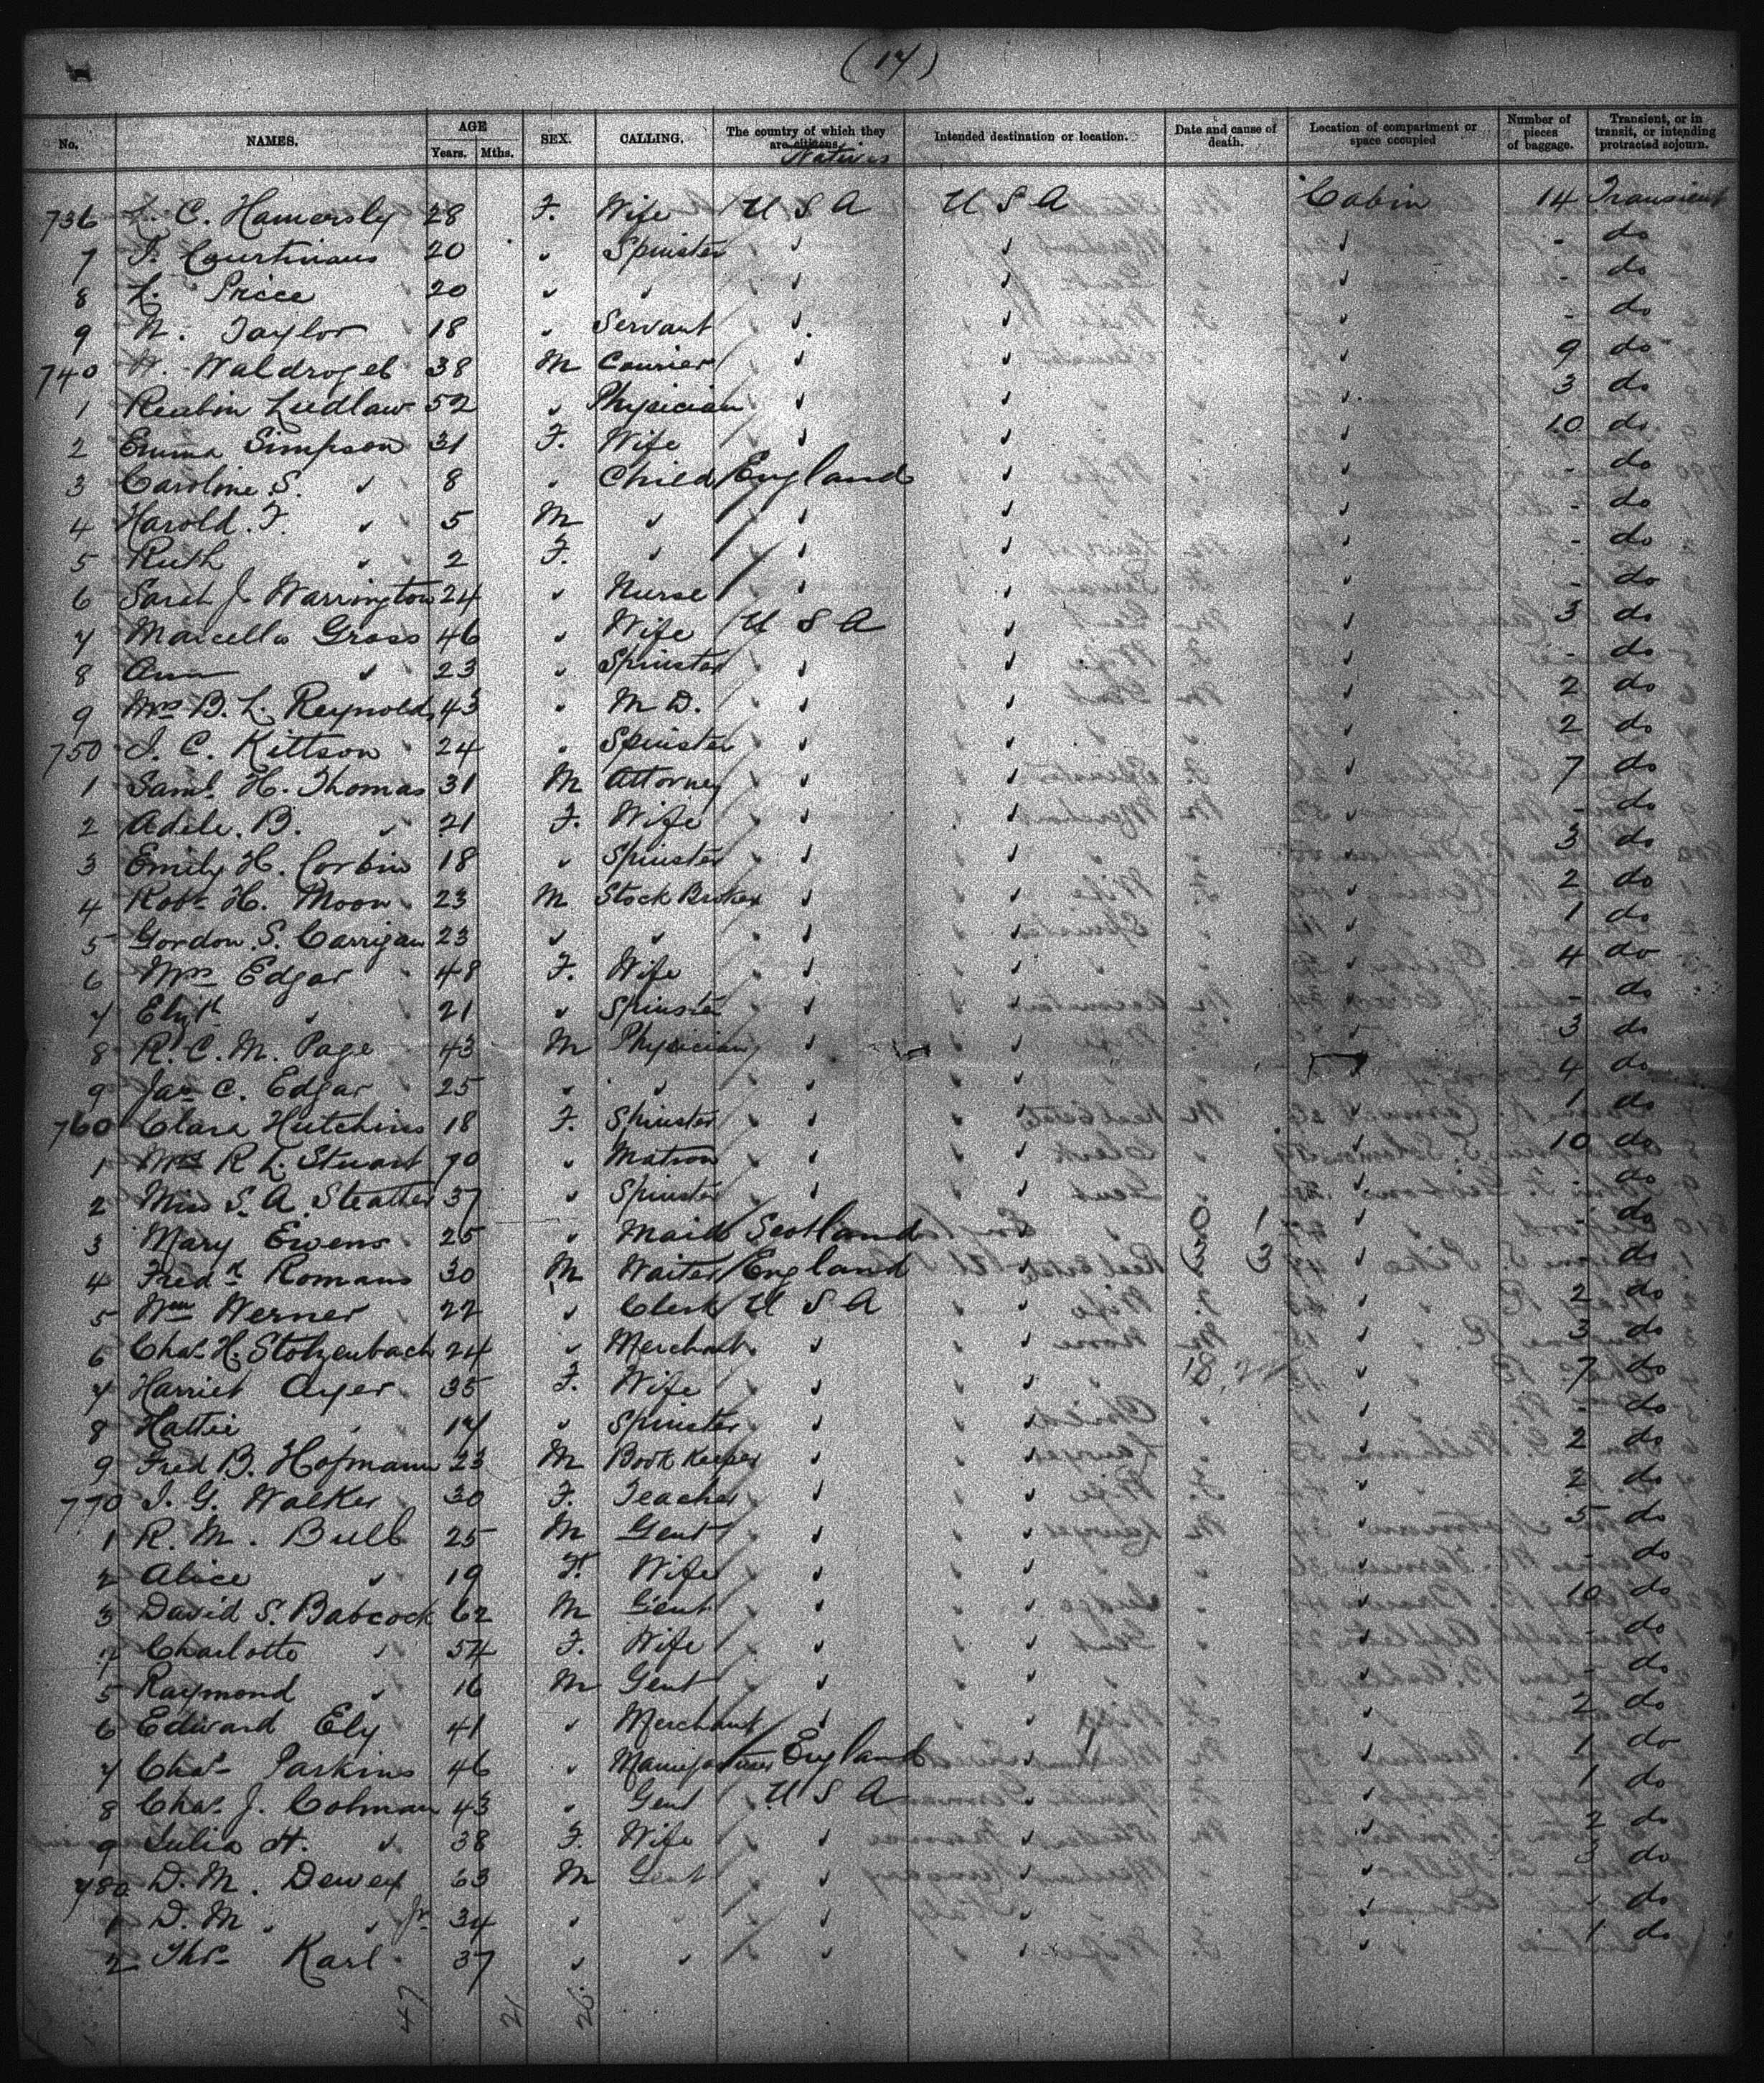 (14)
No. NAMES. AGE Years. Mths. SEX. CALLING. The country of which they are citizens. Natives Intended destination or location. Date and cause of death. Location of compartment or space occupied Number of pieces of baggage. Transient, or in transit, or intending protracted sojourn.
736 L. C. Hamersly 28 F. Wife U S A U S A Cabin 14 Transient
7 20 ✓ Spinster ✓ ✓ ✓ - do
8 L. Price 20 ✓ ✓ ✓ ✓ ✓ - do
9 N. Taylor 18 ✓ Servant ✓ ✓ ✓ - do
740 38 M Courier ✓ ✓ ✓ 9 do
1 Reubin Ludlaw 52 ✓ Physician ✓ ✓ ✓ 3 do
2 Emma Simpson 31 F. Wife ✓ ✓ ✓ 10 do
3 Caroline S. ✓ 8 ✓ Child England ✓ ✓ - do
4 Harold. F. ✓ 5 M ✓ ✓ ✓ ✓ - do
5 Ruth ✓ 2 F. ✓ ✓ ✓ ✓ - do
6 Sarah J. Warrington 24 ✓ Nurse ✓ ✓ ✓ - do
7 Marcella Gross 46 ✓ Wife U S A ✓ ✓ 3 do
8 Ann ✓ 23 ✓ Spinster ✓ ✓ ✓ - do
9 Mrs B. L. Reynolds 43 ✓ M D. ✓ ✓ ✓ 2 do
750 J. C. Kittson 24 ✓ Spinster ✓ ✓ ✓ 2 do
1 Saml. H. Thomas 31 M Attorney ✓ ✓ ✓ 7 do
2 Adele. B. ✓ 21 F. Wife ✓ ✓ ✓ - do
3 Emily H. Corbin 18 ✓ Spinster ✓ ✓ ✓ 3 do
4 Robt H. Moon 23 M Stock Broker ✓ ✓ ✓ 2 do
5 Gordon. S. Carrigan 23 ✓ ✓ ✓ ✓ ✓ 1 do
6 Mrs Edgar 48 F. Wife ✓ ✓ ✓ 4 do
7 Elizth ✓ 21 ✓ Spinster ✓ ✓ ✓ - do
8 R. C. M. Page 43 M Physician ✓ ✓ ✓ 3 do
9 Jas C. Edgar 25 ✓ ✓ ✓ ✓ 4 do
760 Clara Hutchins 18 F. Spinster ✓ ✓ ✓ 1 do
1 Mrs R. L. Stuart 70 ✓ Matron ✓ ✓ ✓ 10 do
2 Miss S. A. 37 ✓ Spinster ✓ ✓ ✓ - do
3 Mary Ewens 25 ✓ Maid Scotland ✓ ✓ - do
4 Fredk Romans 30 M Waiter England ✓ ✓ do
5 Wm Werner 22 ✓ Clerk U S A ✓ ✓ 2 do
6 Chas H. Stotzenbach 24 ✓ Merchant ✓ ✓ ✓ 3 do
7 Harriet Ayer 35 F. Wife ✓ ✓ ✓ 7 do
8 Hattie 14 ✓ Spinster ✓ ✓ ✓ - do
9 Fred B. Hofmann 23 M Book Keeper ✓ ✓ ✓ 2 do
770 J. G. Walker 30 F. Teacher ✓ ✓ ✓ 2 do
1 R. M. Bull 25 M Gent ✓ ✓ ✓ 5 do
2 Alice ✓ 19 F. Wife ✓ ✓ ✓ - do
3 David S. Babcock 62 M Gent ✓ ✓ ✓ 10 do
4 Charlotte ✓ 54 F. Wife ✓ ✓ ✓ - do
5 Raymond ✓ 16 M Gent ✓ ✓ ✓ - do
6 Edward Ely 41 ✓ Merchant ✓ ✓ ✓ 2 do
7 Chas Parkins 46 ✓ Manufacturer England ✓ ✓ 1 do
8 Chas. J. Colman 43 ✓ Gent U S A ✓ ✓ 1 do
9 Julia H. ✓ 38 F. Wife ✓ ✓ ✓ 2 do
780 D. M. Dewey 63 M Gent ✓ ✓ ✓ 3 do
1 D. M. ✓ Jr. 34 ✓ ✓ ✓ ✓ ✓ - do
2 Thos Karl 37 ✓ ✓ ✓ ✓ ✓ 1 do
47 21 26